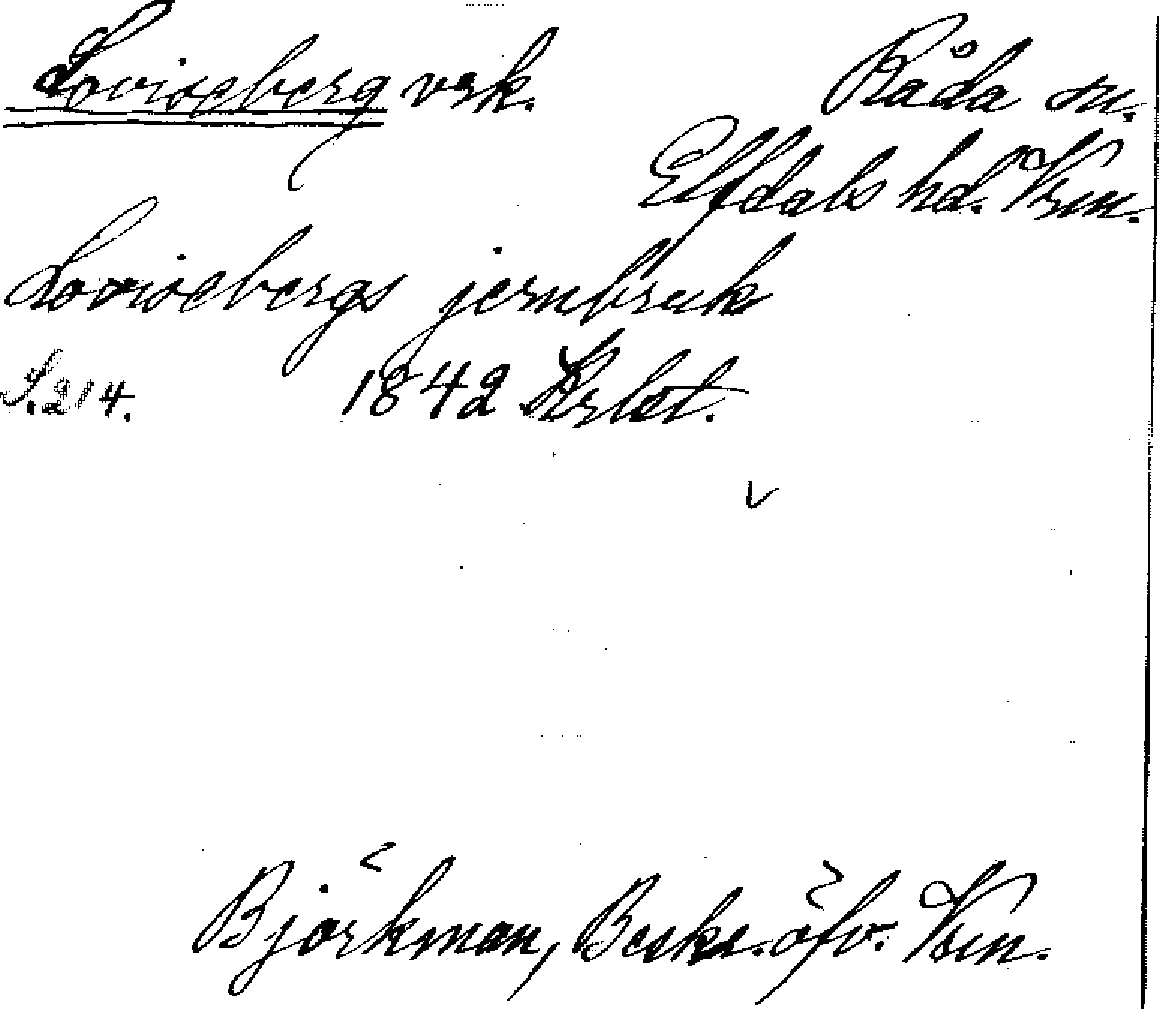 Loviseberg vrk. Råda sn.
Elfdals hd. Vrm.
Lovisebergs jernbruk
S. 214. 1842
Björkman, Beskr. öfv. Vrm.